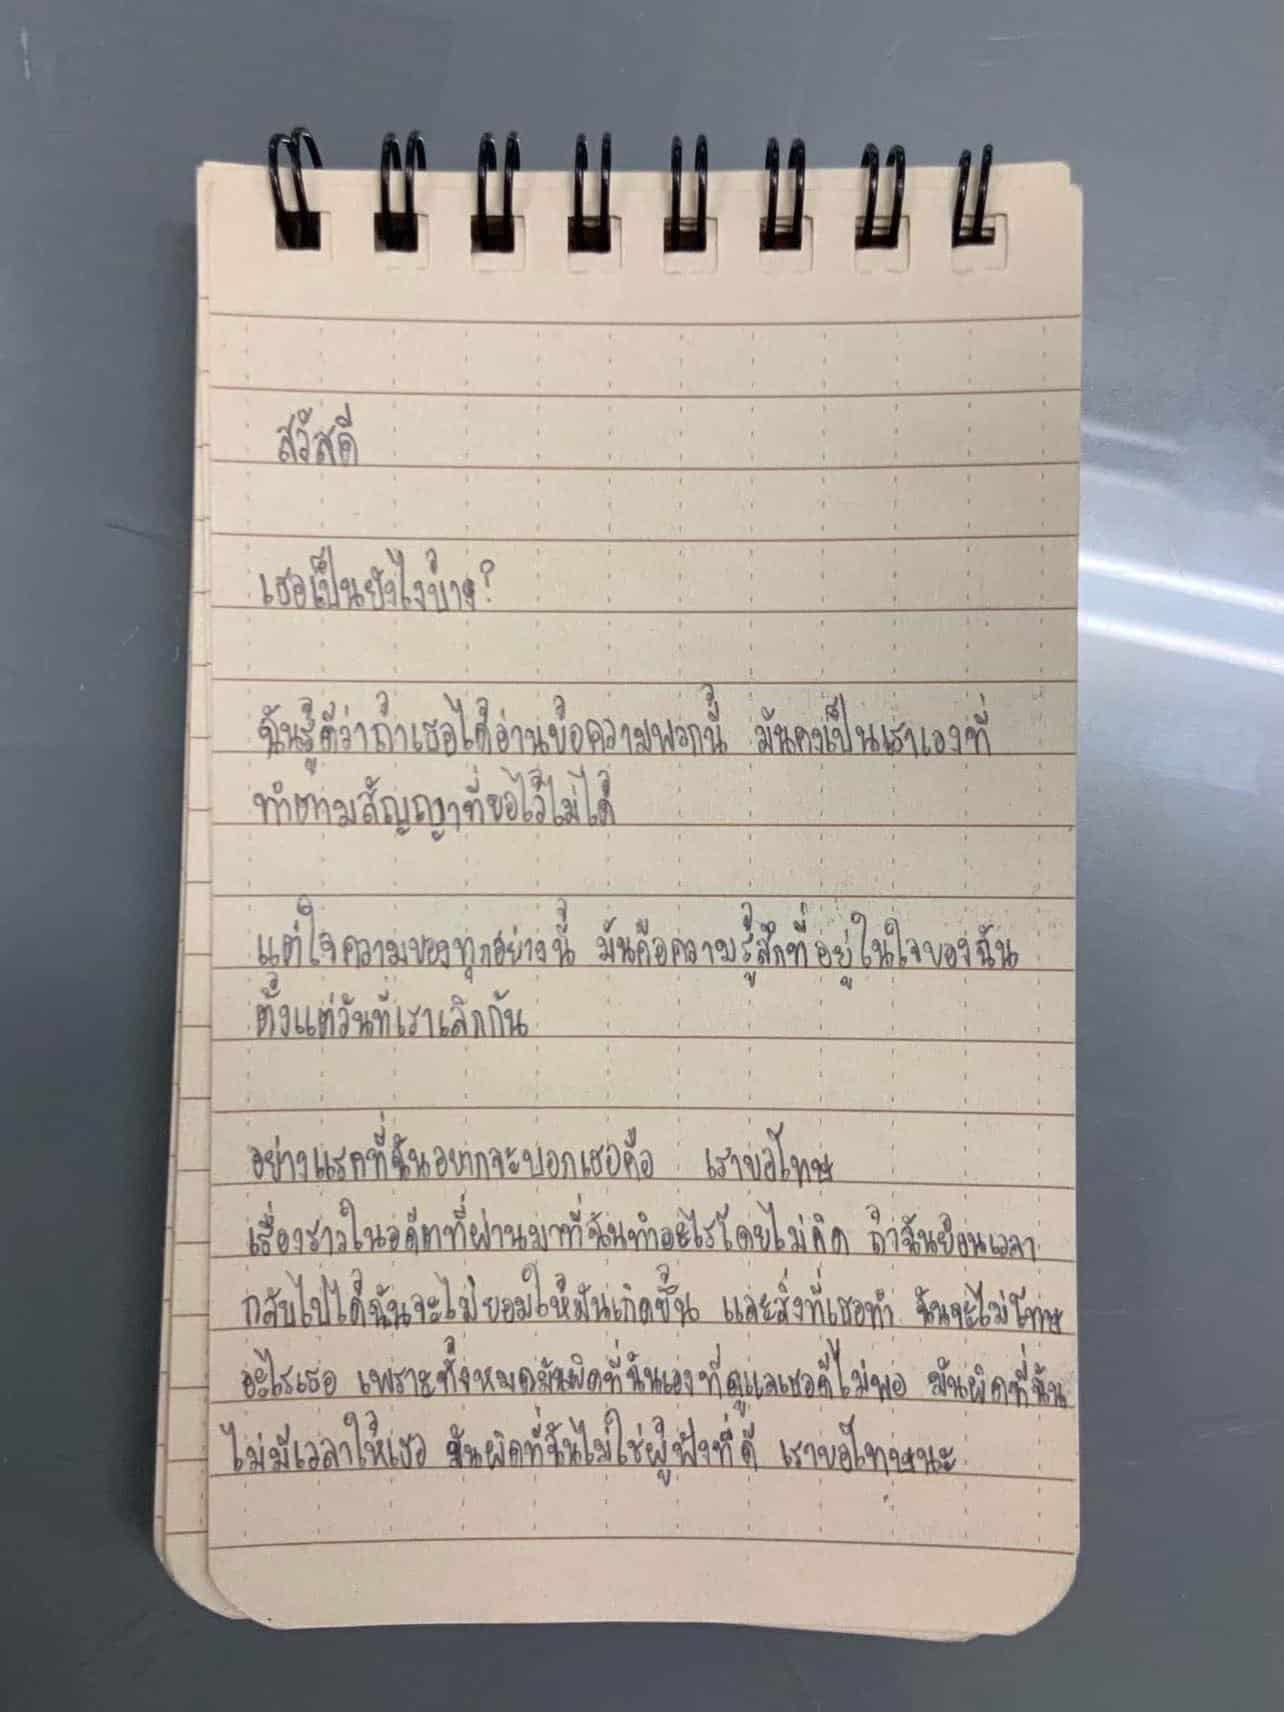 สวัสดี
เธอเป็นยังไงบ้าง?
ฉันรู้ดีว่าถ้าเธอได้อ่านข้อความพวกนี้ มันคงเป็นเราเองที่
ทำตามสัญญาที่ขอไว้ไม่ได้
แต่ใจความของทุกอย่างนี้ มันคือความรู้สึกที่อยู่ในใจของฉัน
ตั้งแต่วันที่เราเลิกกัน
อย่างแรกที่ฉันอยากจะบอกเธอคือ เราขอโทษ
เรื่องราวในอดีตที่ผ่านมาที่ฉันทำอะไรโดยไม่คิด ถ้าฉันย้อนเวลา
กลับไปได้ฉันจะไม่ยอมให้มันเกิดขึ้น และสิ่งที่เธอทำ ฉันจะไม่โทษ
อะไรเธอ เพราะทั้งหมดมันผิดที่ฉันเองที่ดูแลเธอดีไม่พอ มันผิดที่ฉัน
ไม่มีเวลาให้เธอ ฉันผิดที่ฉันไม่ใช่ผู้ฟังที่ดี เราขอโทษนะ